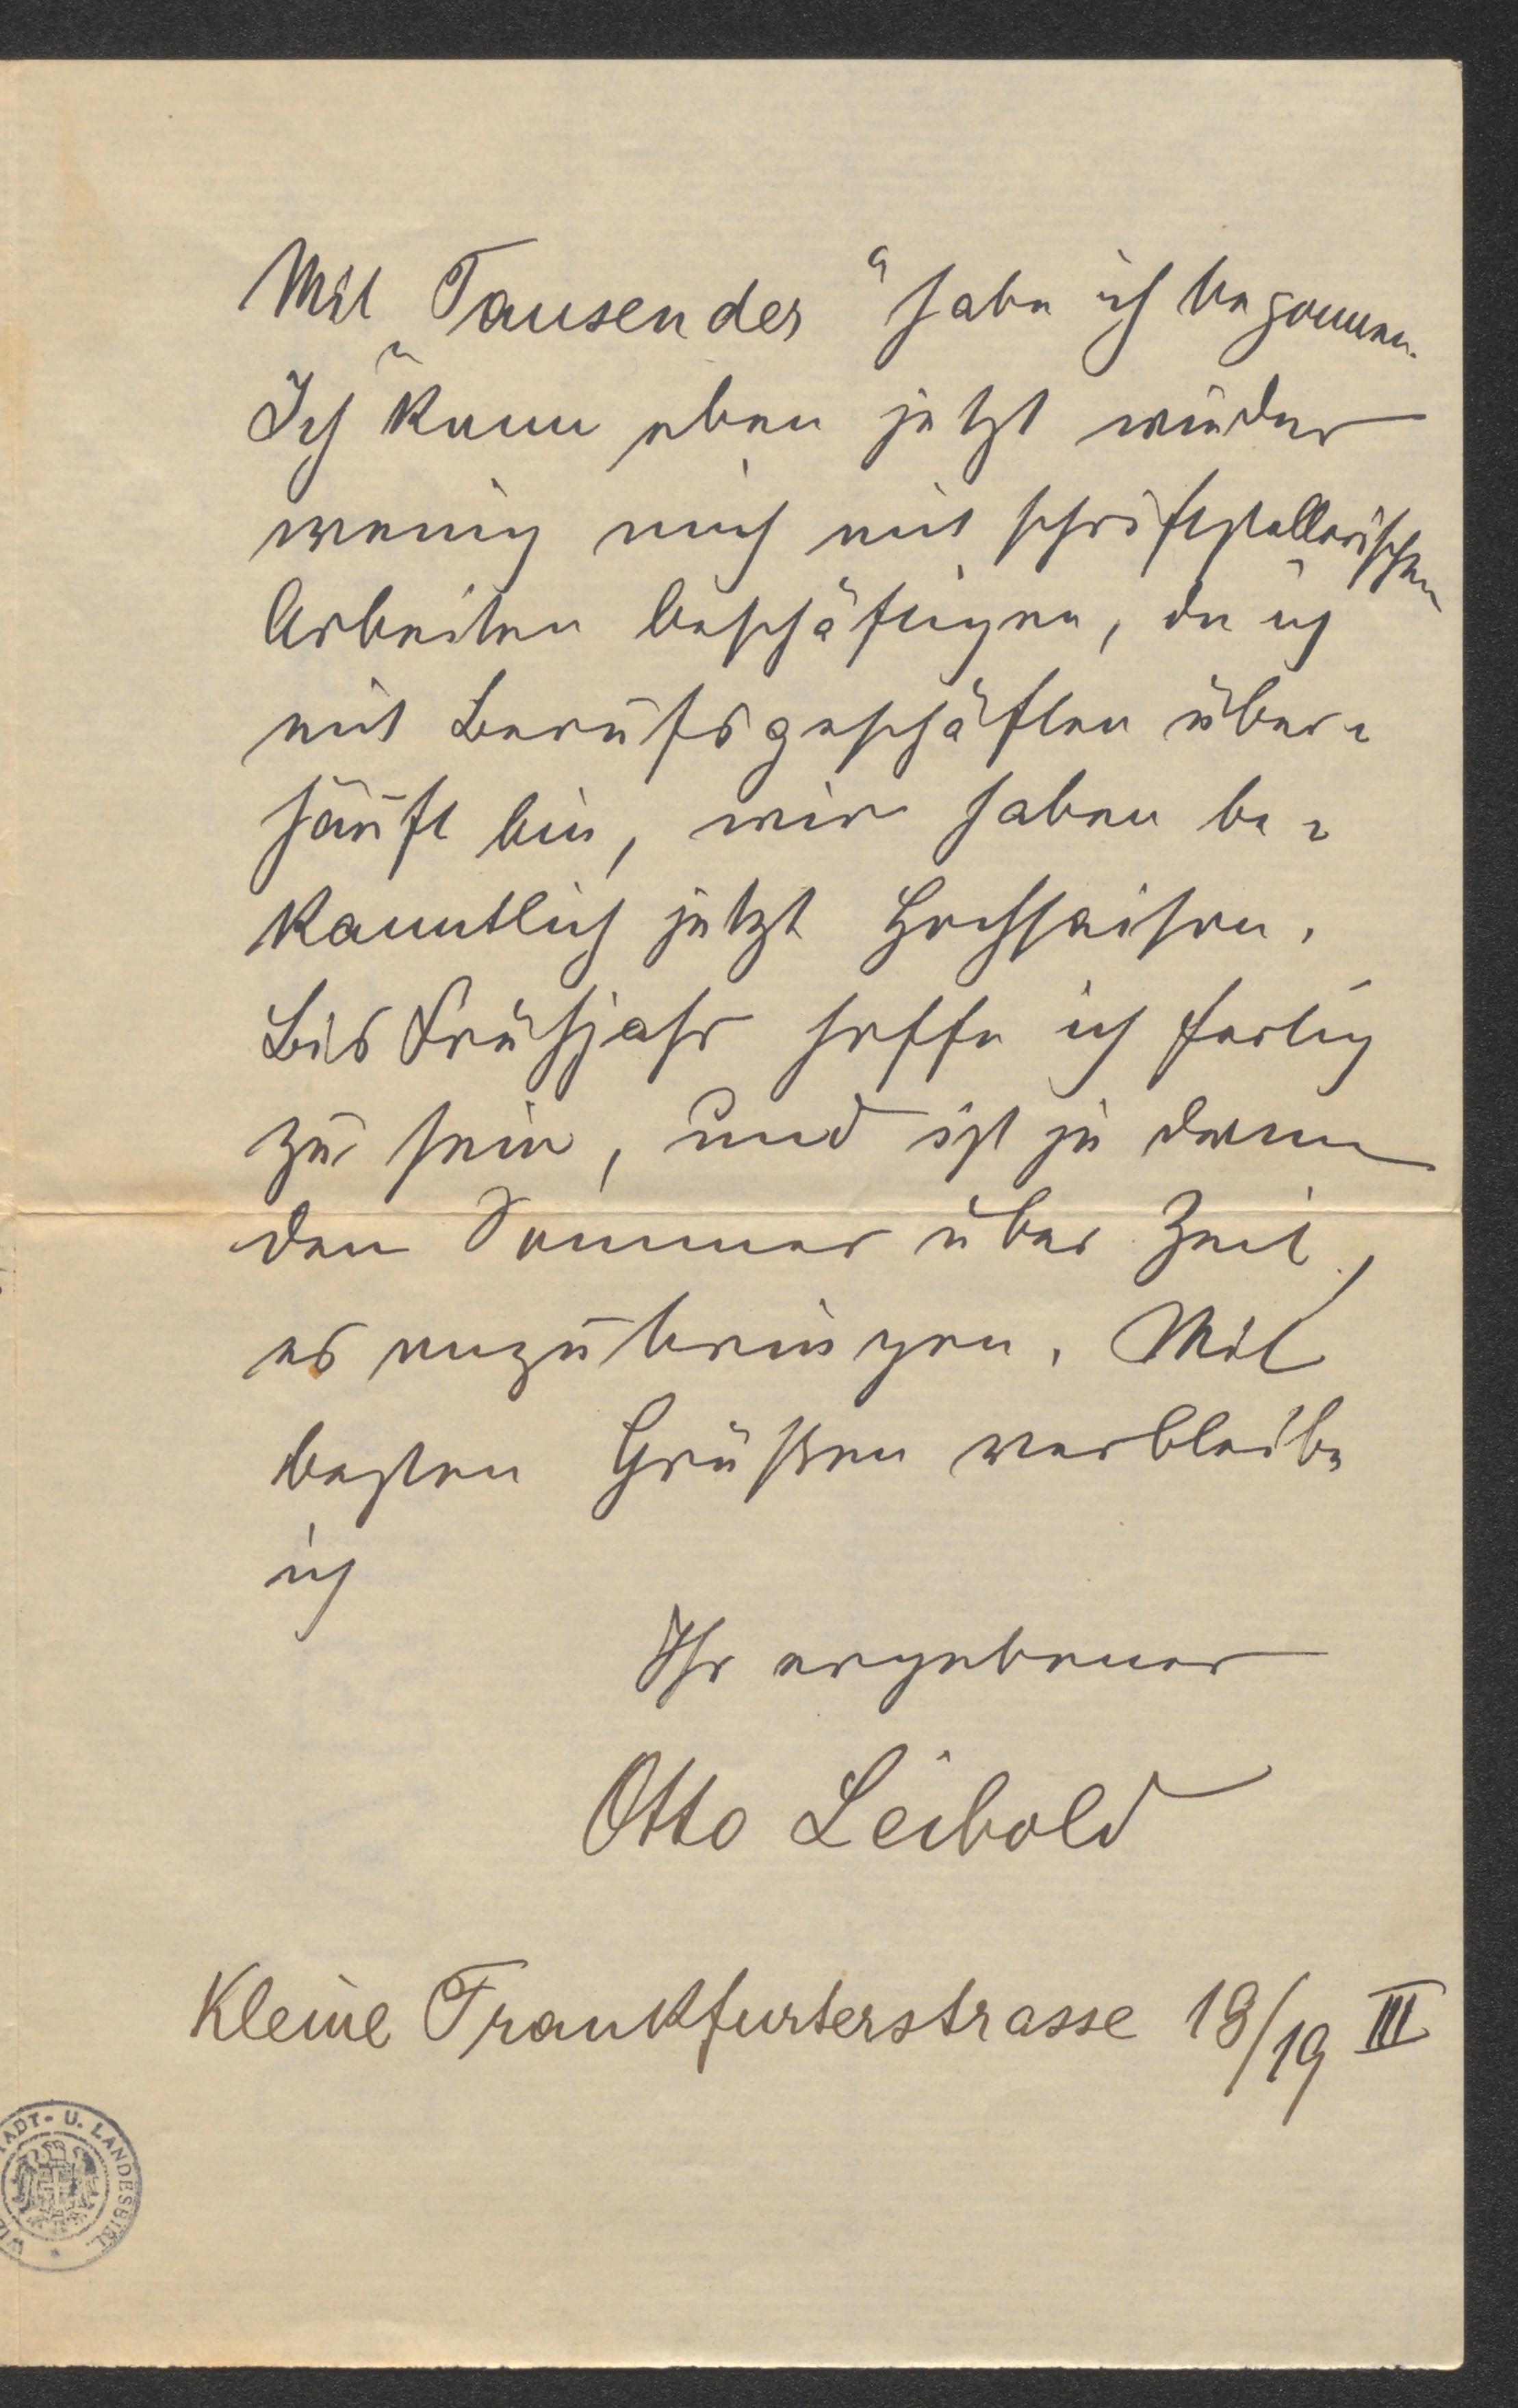 Mit „Tausender“ habe ich begonnen.
Ich kann eben jetzt wieder
wenig mich mit schriftstellerischen
Arbeiten beschäftigen, da ich
mit Berufsgeschäften über-
häuft bin, wir haben be-
kanntlich jetzt Hochsaison.
Bis Frühjahr hoffe ich fertig
zu sein, und ist ja dann
den Sommer über Zeit,
es anzubringen. Mit
besten Grüßen verbleibe
ich
Ihr ergebener
Otto Leibold
Kleine Frankfurterstrasse 18/19 III
ADT- U. LANDESBIBL.